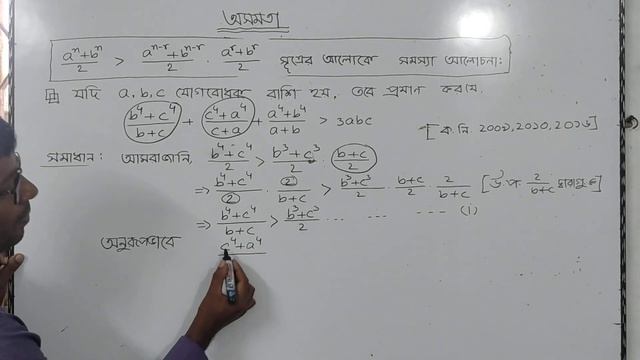 অসমতা
(aⁿ+bⁿ)/2 > (aⁿ⁻ʳ+bⁿ⁻ʳ)/2 · (aʳ+bʳ)/2 সূত্রের আলোকে সমস্যা আলোচনা:
যদি a, b, c যোগবোধক রাশি হয়, তবে প্রমান কর যে,
(b⁴+c⁴)/(b+c) + (c⁴+a⁴)/(c+a) + (a⁴+b⁴)/(a+b) > 3abc
সমাধান: আমরা জানি, (b⁴+c⁴)/2 > (b³+c³)/2 · (b+c)/2
⇒ (b⁴+c⁴)/2 · 2/(b+c) > (b³+c³)/2 · (b+c)/2 · 2/(b+c)
⇒ (b⁴+c⁴)/(b+c) > (b³+c³)/2 ... ... --- (i)
অনুরূপভাবে c⁴+a⁴